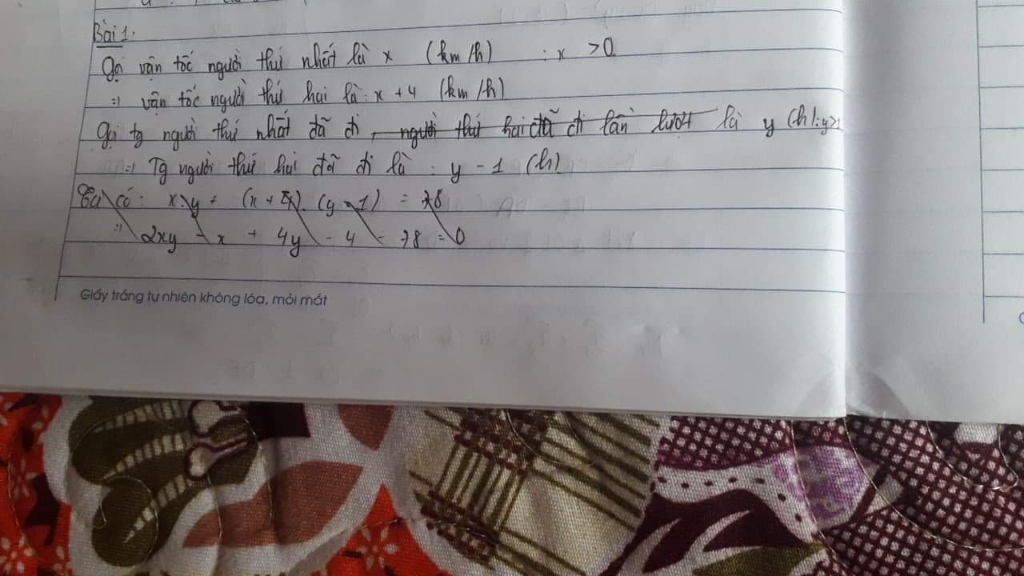 Bài 1:
Gọi vận tốc người thứ nhất là x (km/h) : x > 0
=> vận tốc người thứ hai là: x + 4 (km/h)
Gọi tg người thứ nhất đã đi, người thứ hai đã đi lần lượt là y (h!; y>
=> Tg người thứ hai đã đi là : y - 1 (h)
Ta có: xy + (x + ). (y - 1) = 78
=> 2xy - x + 4y - 4 - 78 = 0
Giấy trắng tự nhiên không lóa, mỏi mắt